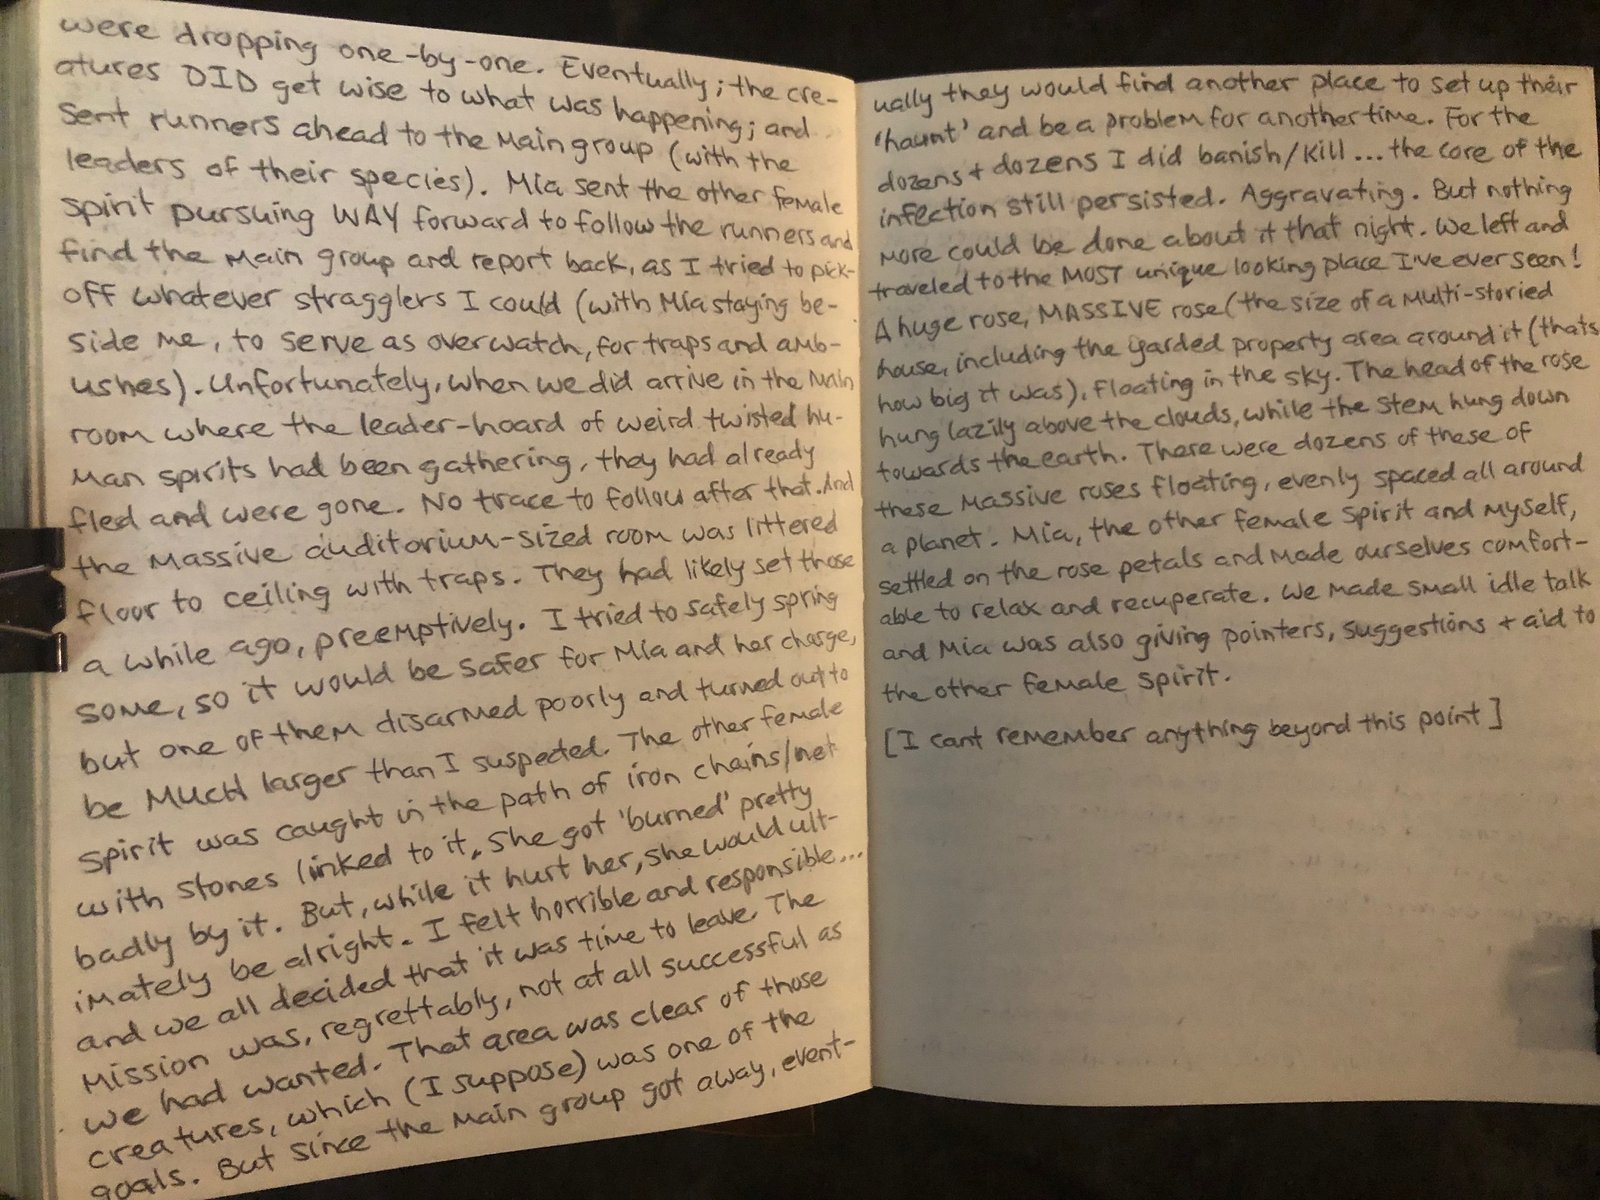 were dropping one-by-one. Eventually; the cre-
atures DID get wise to what was happening; and
sent runners ahead to the main group (with the
leaders of their species). Mia sent the other female
spirit pursuing WAY forward to follow the runners and
find the main group and report back, as I tried to pick-
off whatever stragglers I could (with Mia staying be-
side me, to serve as overwatch, for traps and amb-
ushes). Unfortunately, when we did arrive in the main
room where the leader-hoard of weird twisted hu-
man spirits had been gathering, they had already
fled and were gone. No trace to follow after that. And
the massive auditorium-sized room was littered
floor to ceiling with traps. They had likely set those
a while ago, preemptively. I tried to safely spring
some, so it would be safer for Mia and her charge,
but one of them disarmed poorly and turned out to
be MUCH larger than I suspected. The other female
spirit was caught in the path of iron chains/net
with stones linked to it. She got 'burned' pretty
badly by it. But, while it hurt her, she would ult-
imately be alright. I felt horrible and responsible...
and we all decided that it was time to leave. The
mission was, regrettably, not at all successful as
we had wanted. That area was clear of those
creatures, which (I suppose) was one of the
goals. But since the main group got away, event-
ually they would find another place to set up their
'haunt' and be a problem for another time. For the
dozens + dozens I did banish/kill... the core of the
infection still persisted. Aggravating. But nothing
more could be done about it that night. We left and
traveled to the MOST unique looking place I've ever seen!
A huge rose, MASSIVE rose (the size of a multi-storied
house, including the yarded property area around it (thats
how big it was), floating in the sky. The head of the rose
hung lazily above the clouds, while the stem hung down
towards the earth. There were dozens of these of
these massive roses floating, evenly spaced all around
a planet. Mia, the other female spirit and myself,
settled on the rose petals and made ourselves comfort-
able to relax and recuperate. We made small idle talk
and Mia was also giving pointers, suggestions + aid to
the other female spirit.
[I cant remember anything beyond this point]